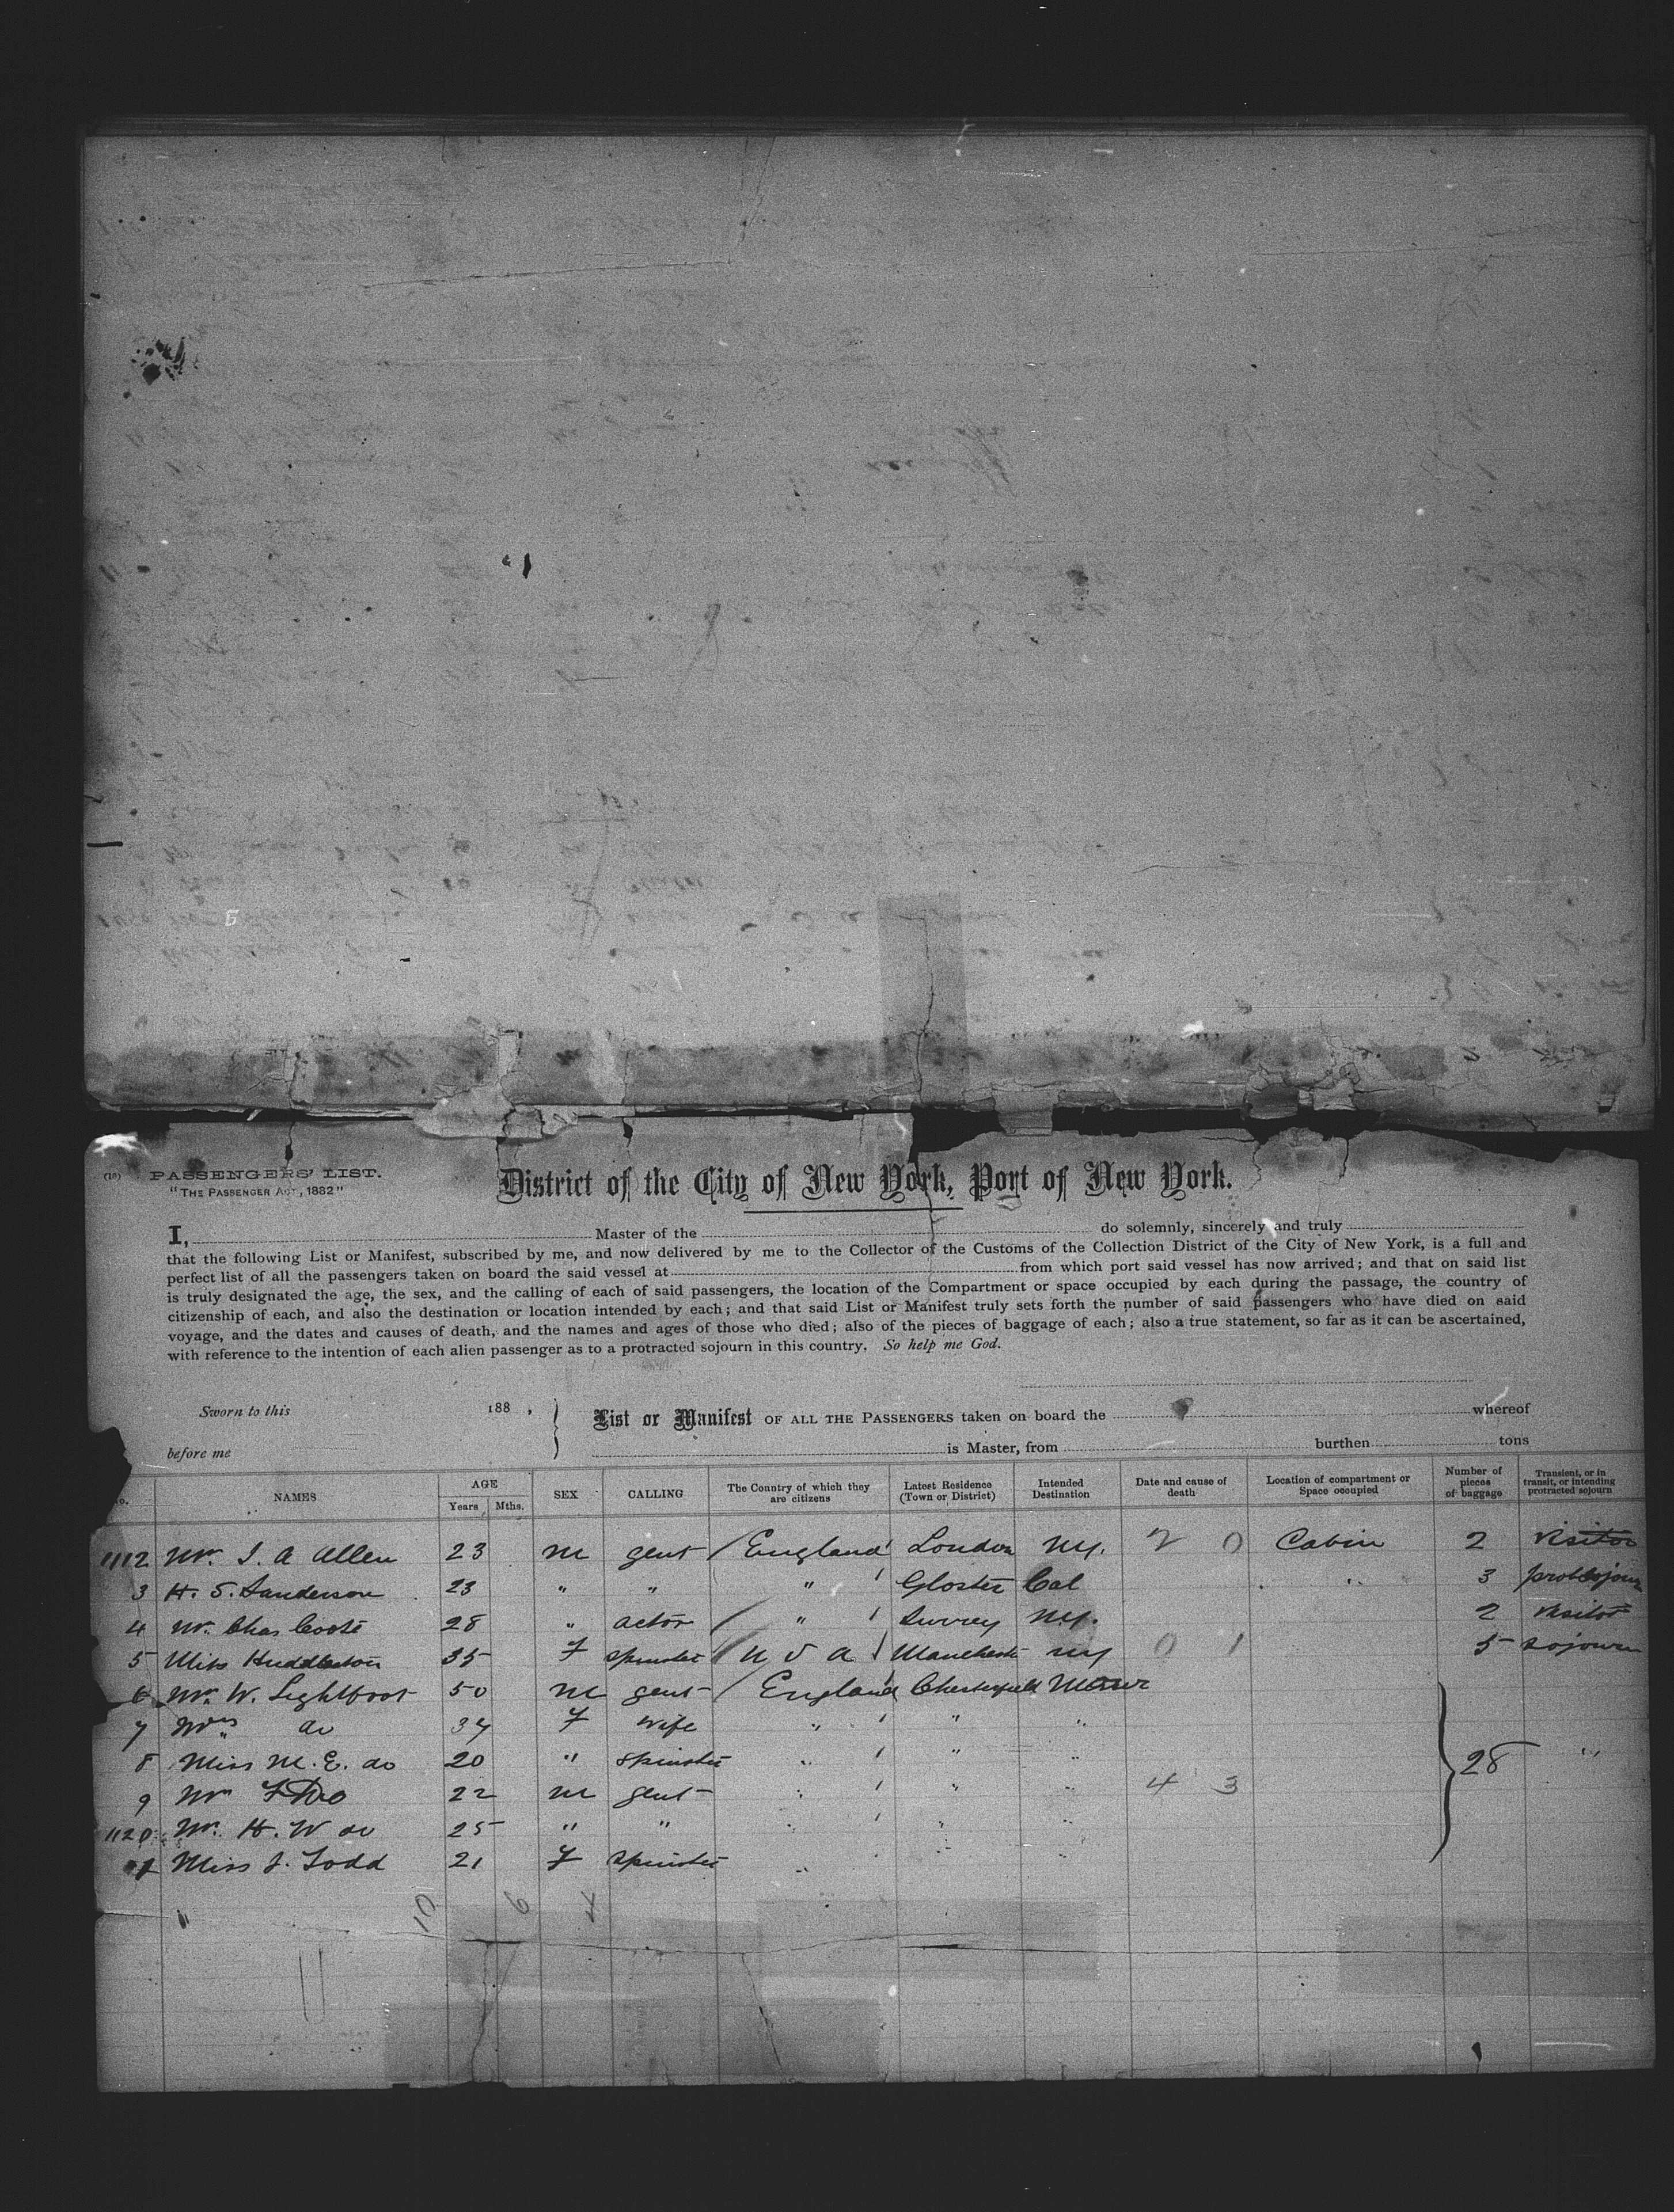 (10) PASSENGERS' LIST.
"THE PASSENGER ACT, 1882"
District of the City of New York, Port of New York.
I, Master of the do solemnly, sincerely and truly
that the following List or Manifest, subscribed by me, and now delivered by me to the Collector of the Customs of the Collection District of the City of New York, is a full and
perfect list of all the passengers taken on board the said vessel at from which port said vessel has now arrived; and that on said list
is truly designated the age, the sex, and the calling of each of said passengers, the location of the Compartment or space occupied by each during the passage, the country of
citizenship of each, and also the destination or location intended by each; and that said List or Manifest truly sets forth the number of said passengers who have died on said
voyage, and the dates and causes of death, and the names and ages of those who died; also of the pieces of baggage of each; also a true statement, so far as it can be ascertained,
with reference to the intention of each alien passenger as to a protracted sojourn in this country. So help me God.
Sworn to this 188 ,
before me
List or Manifest OF ALL THE PASSENGERS taken on board the whereof
is Master, from burthen tons
No. NAMES AGE Years Mths. SEX CALLING The Country of which they are citizens Latest Residence (Town or District) Intended Destination Date and cause of death Location of compartment or Space occupied Number of pieces of baggage Transient, or in transit, or intending protracted sojourn
1112 Mr. J. A Allen 23 m gent England London NY. 2 0 Cabin 2 visitor
3 H. S. Sanderson 23 " " " Gloster Cal " 3
4 Mr. Chas Coote 28 " actor " Surrey NY. 2 visitor
5 Miss Huddleston 35 F spinster U S A Manchestr NY 0 1 5 sojourn
6 Mr. W. Lightfoot 50 m gent England Chesterfield
7 Mrs do 34 F wife " " "
8 Miss M. E. do 20 " spinster " " " 28 "
9 Mr F Do 22 m gent " " " 4 3
1120 Mr. H. W do 25 " " " " "
1 Miss J. Todd 21 F spinster " " "
10 6 4